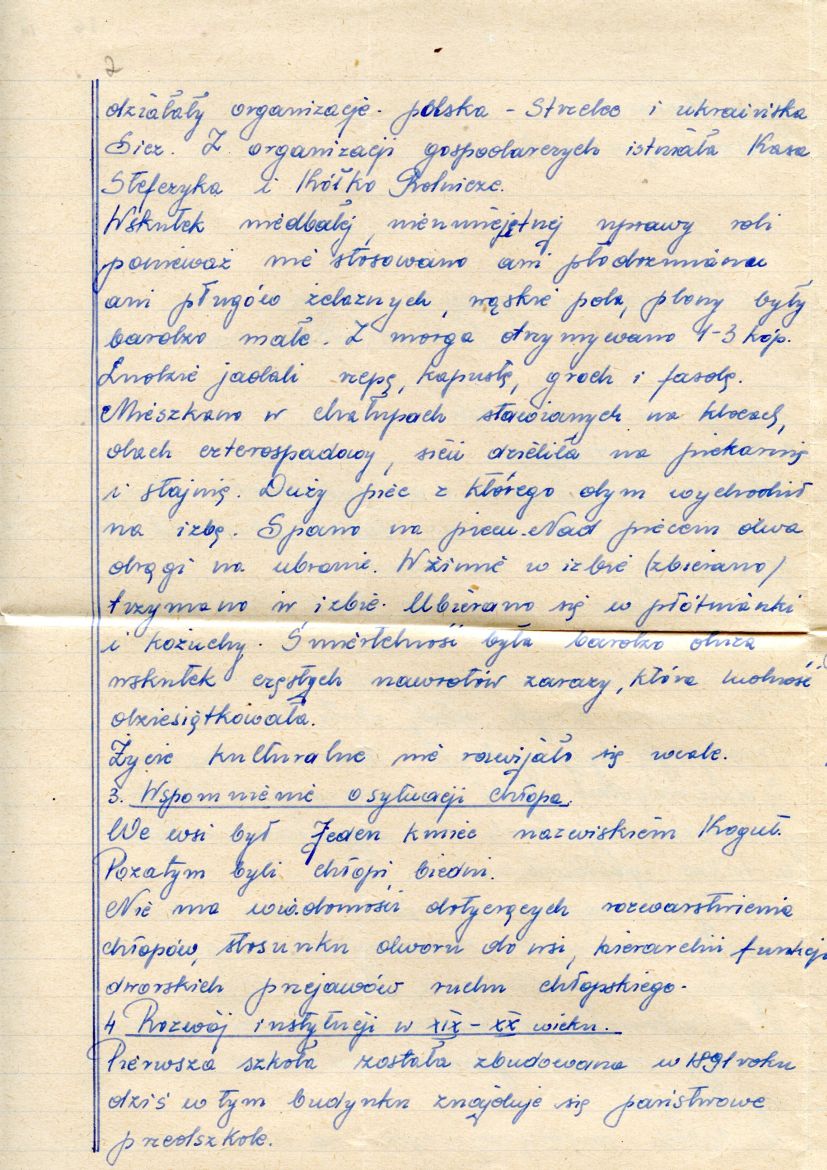 2
działały organizacje. polska - Strzelec i ukraińska
Sicz. Z organizacji gospodarczych istniała Kasa
Stefczyka i Kółko Rolnicze.
Wskutek niedbałej, nieumiejętnej uprawy roli
ponieważ nie stosowano ani płodozmianu
ani pługów żelaznych, wąskie pola, plony były
bardzo małe. Z morga otrzymywano 1-3 kóp.
Ludzie jadali rzepę, kapustę, groch i fasolę.
Mieszkano w chałupach stawianych na klocach,
dach czterospadowy, sień dzieliła na piekarnię
i stajnię. Duży piec z którego dym wychodził
na izbę. Spano na piecu. Nad piecem dwa
drągi na ubranie. W zimie w izbie (zbierano)
trzymano w izbie. Ubierano się w płótnianki
i kożuchy. Śmiertelność była bardzo duża
wskutek częstych nawrotów zarazy, która ludność
dziesiątkowała.
Życie kulturalne nie rozwijało się wcale.
3. Wspomnienie o sytuacji chłopa.
We wsi był jeden kmieć nazwiskiem Kogut.
Pozatym byli chłopi biedni.
Nie ma wiadomości dotyczących rozwarstwienia
chłopów, stosunku dworu do wsi, hierarchii funkcji
dworskich przejawów ruchu chłopskiego.
4 Rozwój instytucji w XIX - XX wieku.
Pierwsza szkoła została zbudowana w 1891 roku
dziś w tym budynku znajduje się państwowe
przedszkole.